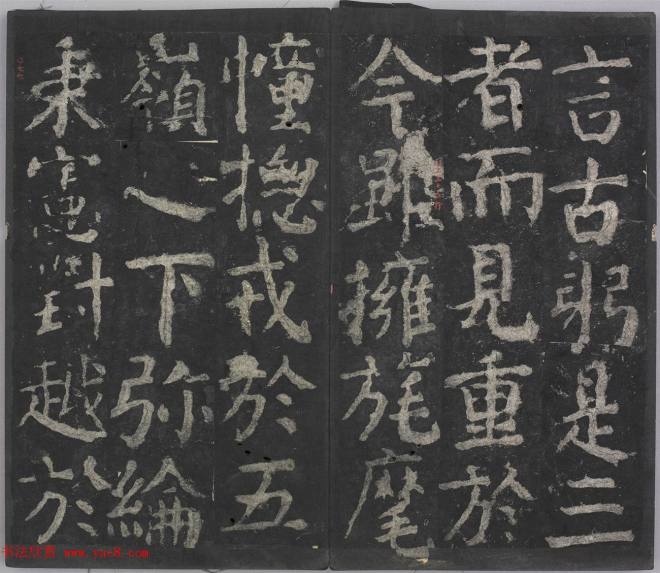 言古躬是三
者而見重於
今雖擁旄麾
幢揔戎於五
嶺之下弥綸
秉憲對越於
书法欣赏 www.yac8.com